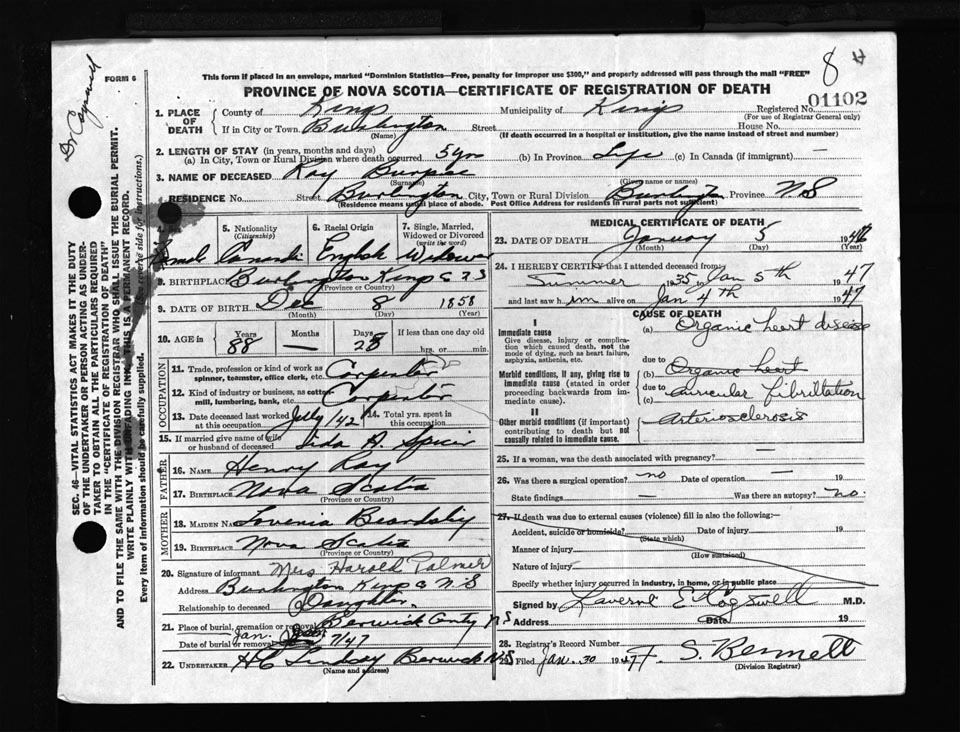 8
FORM 6
This form if placed in an envelope, marked "Dominion Statistics—Free, penalty for improper use $300," and properly addressed will pass through the mail "FREE"
PROVINCE OF NOVA SCOTIA—CERTIFICATE OF REGISTRATION OF DEATH
Registered No. 01102
(For use of Registrar General only)
1. PLACE OF DEATH County of Kings Municipality of Kings
If in City or Town Burlington Street House No.
(Name) (If death occurred in a hospital or institution, give the name instead of street and number)
2. LENGTH OF STAY (in years, months and days)
(a) In City, Town or Rural Division where death occurred 5 yrs (b) In Province Life (c) In Canada (if immigrant) —
3. NAME OF DECEASED Ray Burpee
(Surname) (Given name or names)
RESIDENCE No. Street Burlington City, Town or Rural Division Burlington Province N.S
(Residence means usual place of abode. Post Office Address for residents in rural parts not sufficient)
5. Nationality (Citizenship)
6. Racial Origin
7. Single, Married, Widowed or Divorced (write the word)
English Widower
8. BIRTHPLACE Burlington Kings Co
(Province or Country)
9. DATE OF BIRTH Dec 8 1858
(Month) (Day) (Year)
10. AGE in Years Months Days If less than one day old
88 — 28 hrs. or min.
OCCUPATION
11. Trade, profession or kind of work as spinner, teamster, office clerk, etc. Carpenter
12. Kind of industry or business, as cotton-mill, lumbering, bank, etc. Carpenter
13. Date deceased last worked at this occupation July /42 14. Total yrs. spent in this occupation
15. If married give name of wife or husband of deceased A. Spicer
FATHER
16. NAME Henry Ray
17. BIRTHPLACE Nova Scotia
(Province or Country)
MOTHER
18. MAIDEN NAME Lovenia
19. BIRTHPLACE Nova Scotia
(Province or Country)
20. Signature of informant Mrs Harold Palmer
Address Burlington Kings Co N.S
Relationship to deceased Daughter
21. Place of burial, cremation or removal Berwick N S
Date of burial or removal Jan. 7/47
22. UNDERTAKER H C Lindsay Berwick N.S
(Name and address)
MEDICAL CERTIFICATE OF DEATH
23. DATE OF DEATH January 5 19
(Month) (Day)
24. I HEREBY CERTIFY that I attended deceased from
Summer 1935 Jan 5th 1947
and last saw him alive on Jan 4th 1947
CAUSE OF DEATH
I
Immediate cause
Give disease, injury or complication which caused death, not the mode of dying, such as heart failure, asphyxia, asthenia, etc.
(a) Organic heart disease
due to
Morbid conditions, if any, giving rise to immediate cause (stated in order proceeding backwards from immediate cause).
(b) Organic heart
due to
(c) auricular fibrillation
II
Other morbid conditions (if important) contributing to death but not causally related to immediate cause.
Arteriosclerosis
25. If a woman, was the death associated with pregnancy? —
26. Was there a surgical operation? no Date of operation — 19
State findings — Was there an autopsy? no.
27. If death was due to external causes (violence) fill in also the following:—
Accident, suicide or homicide? Date of injury 19
(State which)
Manner of injury
(How sustained)
Nature of injury
Specify whether injury occurred in industry, in home, or in public place
Signed by Laverne E. Cogswell M.D.
Address Date 19
28. Registrar's Record Number
Filed Jan. 30 1947 F. S. Bennett
(Division Registrar)
Dr Cogswell
SEC. 46—VITAL STATISTICS ACT MAKES IT THE DUTY
OF THE UNDERTAKER OR PERSON ACTING AS UNDER-
TAKER TO OBTAIN ALL THE PARTICULARS REQUIRED
IN THE "CERTIFICATE OF REGISTRATION OF DEATH"
AND TO FILE THE SAME WITH THE DIVISION REGISTRAR WHO SHALL ISSUE THE BURIAL PERMIT.
WRITE PLAINLY WITH UNFADING INK, THIS IS A PERMANENT RECORD.
Every item of information should be carefully supplied. (See reverse side for instructions.)